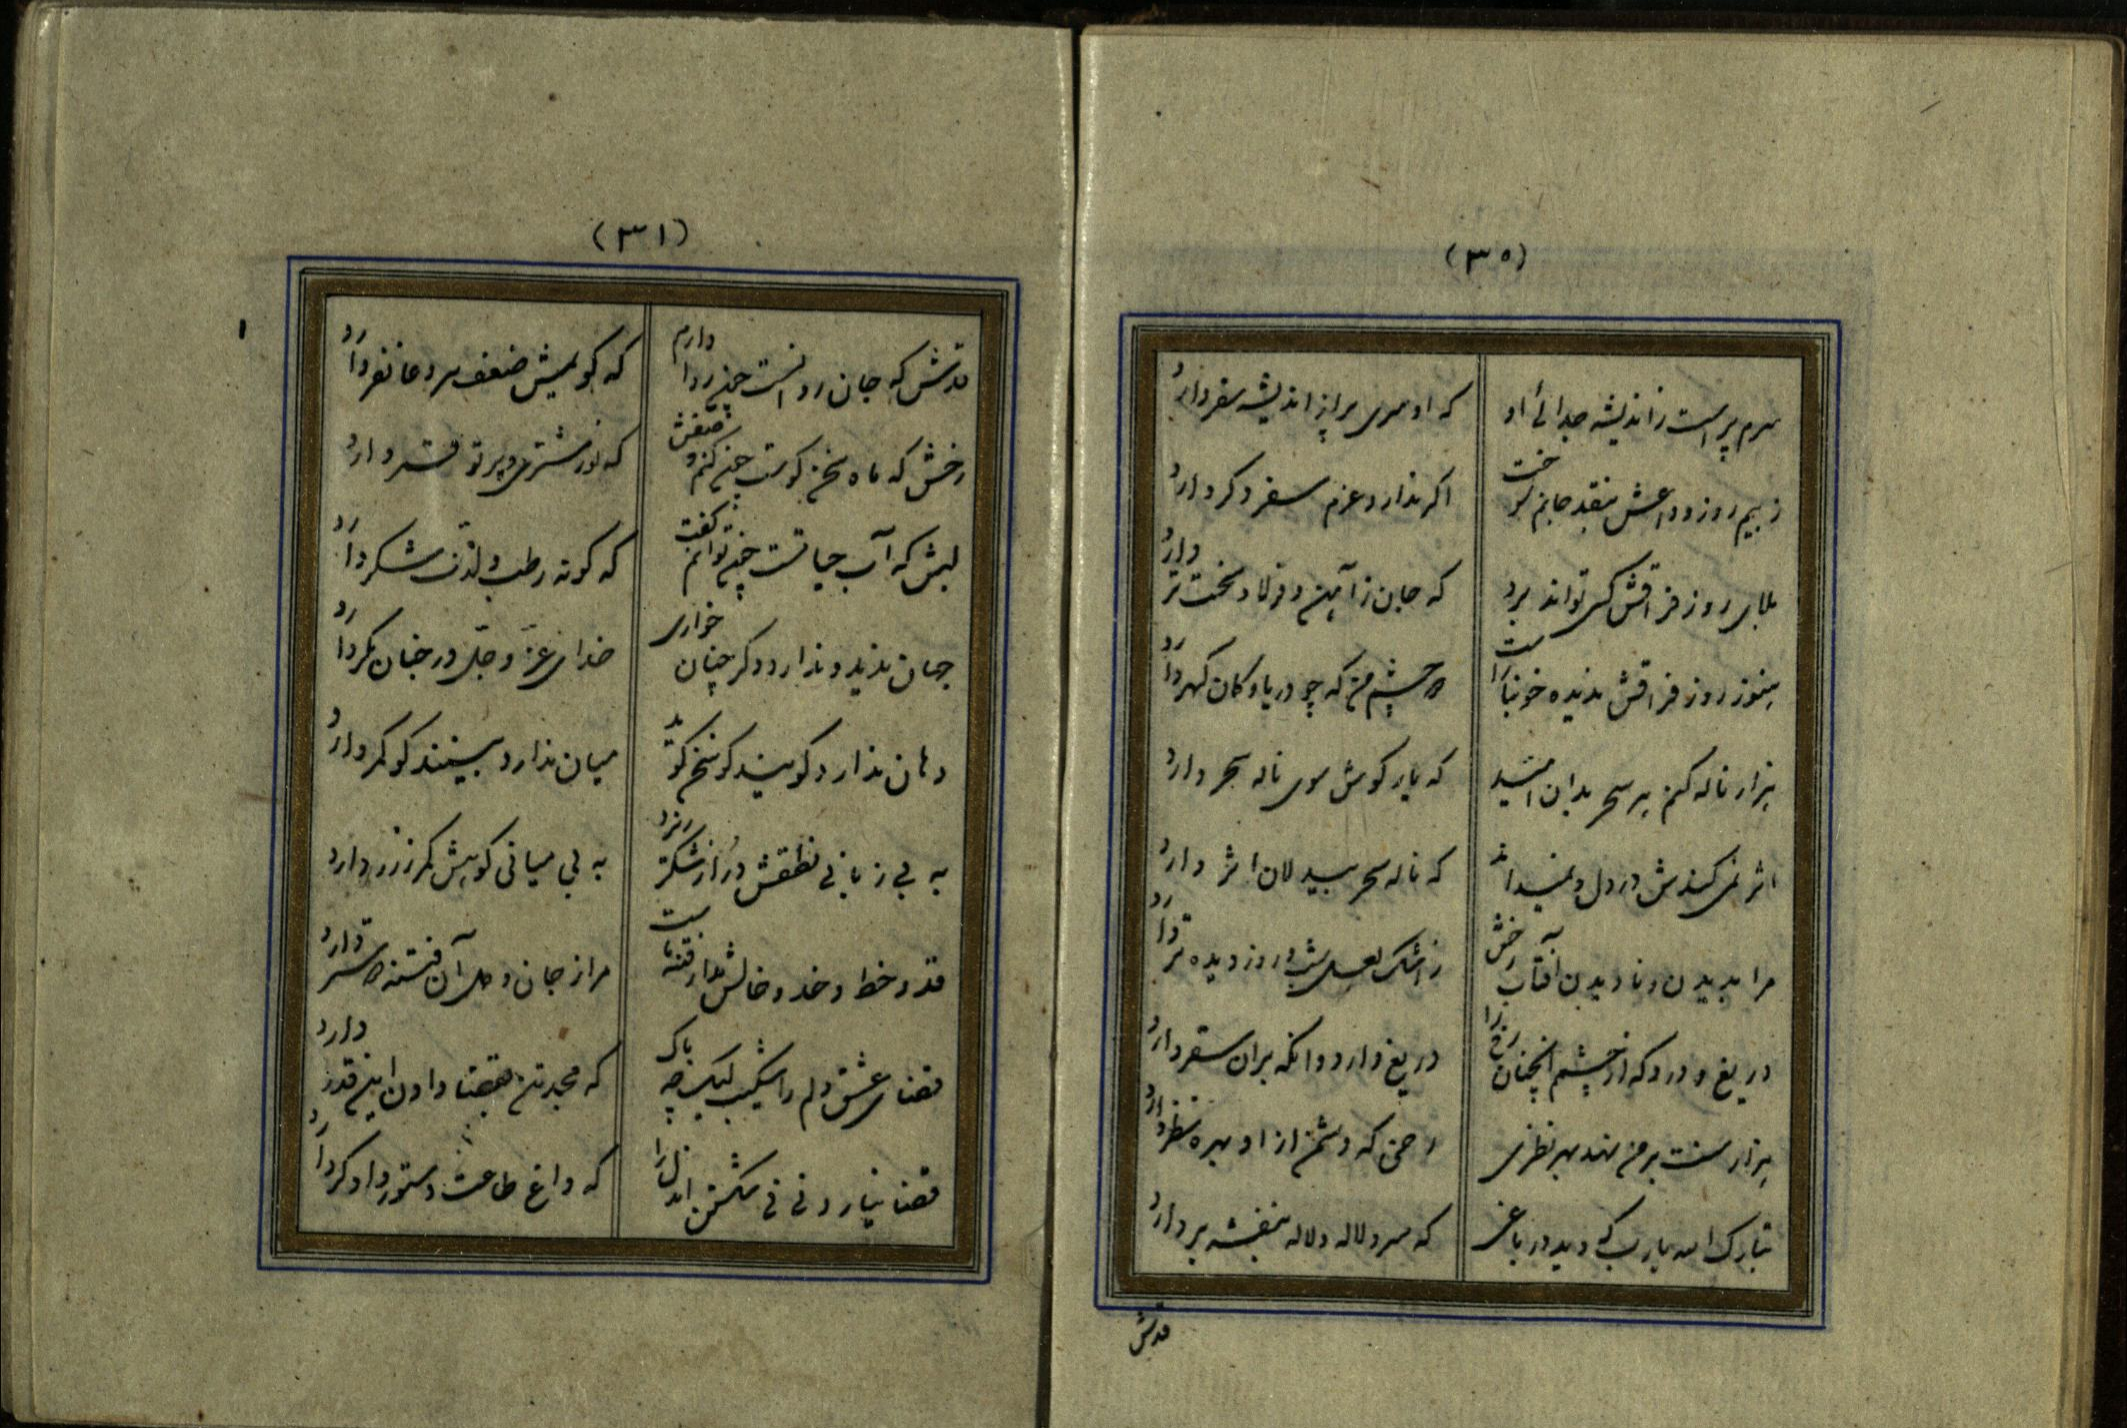 (۳۰)
سرم پر است ز اندیشه جدائی او
که او سری پر از اندیشه سفر دارد
ز بیم روز وداعش بنقد جانم سوخت
اگر ندارد عزم سفر وگر دارد
بلای روز فراقش کسی تواند برد
که جان ز آهن و فولاد سخت تر دارد
هنوز روز فراقش ندیده خونبار است
دو چشم من که چو دریا و کان گهر دارد
هزار ناله کنم هر سحر بدان امید
که یار گوش سوی ناله سحر دارد
اثر نمی کندش در دل و نمیداند
که ناله سحر بیدلان اثر دارد
مرا بدیدن و نادیدن آفتاب رخش
ز اشک لعل شب و روز دیده تر دارد
دریغ و درد که از چشم من چنان رخ را
دریغ دارد وانگه بر آن سفر دارد
هزار منت بر من نهد بهر نظری
رخی که دشمن از او بهره نظر دارد
تبارک الله یارب که دید در باغی
که سرو لاله و لاله بنفشه بر دارد
قدش
(۳۱)
قدش که جان روانست چون روا دارم
که گویمش صفت سرو غاتفر دارد
رخش که ماه سخن گوست چون کنم وصفش
که نور مشتری و پرتو قمر دارد
لبش که آب حیاتست چون توانم گفت
که گونه رطب و لذت شکر دارد
جهان ندید و ندارد دگر چنان خواری
خدای عز و جل در جنان مگر دارد
دهان ندارد گویند کو سخن گوید
میان ندارد بینند کو کمر دارد
به بی زبانی نطقش در از شکر ریزد
به بی میانی کوهش کمر ز زر دارد
قد و خط و خد و خالش مدار فتنه ماست
مرا ز جان و دل آن فتنه دوستر دارد
قضای عشق دلم را شکیب لیک چه باک
که مجد تن بقضا دادن این قدر دارد
قضا نیارد نی نی شکستن آندل را
که داغ طاعت دستور دادگر دارد